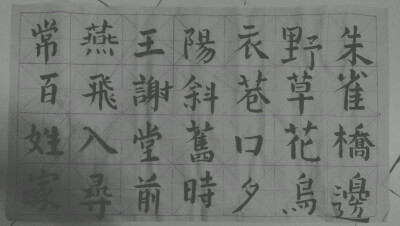 朱雀橋邊
野草花烏
衣巷口夕
陽斜舊時
王謝堂前
燕飛入尋
常百姓家